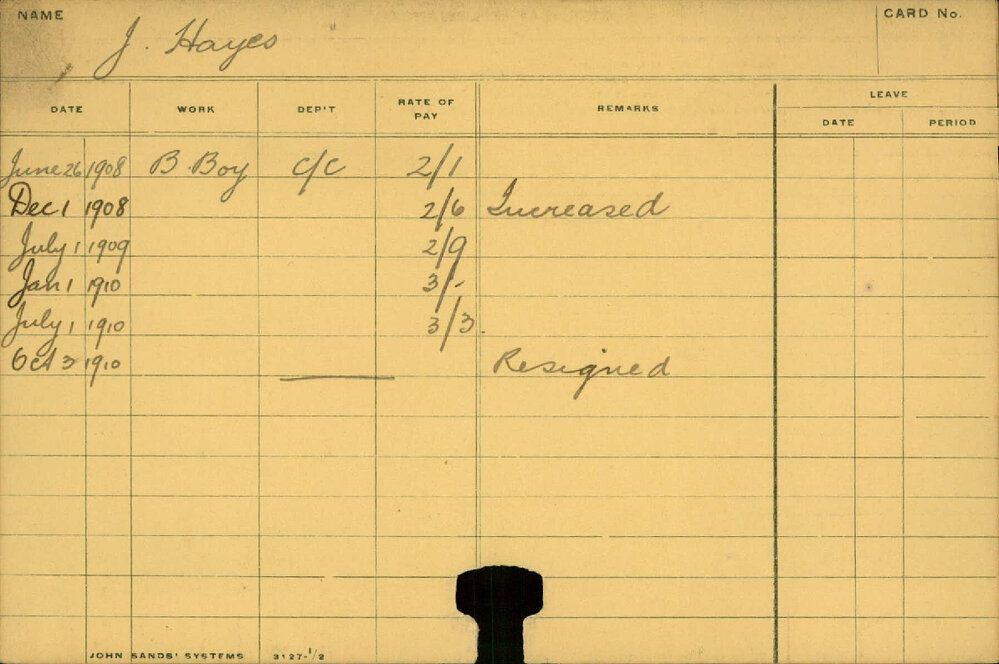 NAME
CARD No.
J. Hayes
DATE WORK DEP'T RATE OF PAY REMARKS LEAVE
DATE PERIOD
June 26 1908 B. Boy C/C 2/1
Dec 1 1908 2/6 Increased
July 1 1909 2/9
Jan 1 1910 3/-
July 1 1910 3/3.
Oct 3 1910 Resigned
JOHN SANDS' SYSTEMS 3127-1/2